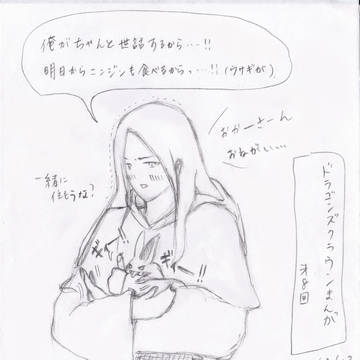 俺がちゃんと世話するから…!!
明日からニンジンも食べるからっ…!!(ウサギが)
おかーさーん
おねがい…
一緒に
住もうな?
ギュイー!!
ギュイー!!
ドラゴンズクラウンまんが
第8回